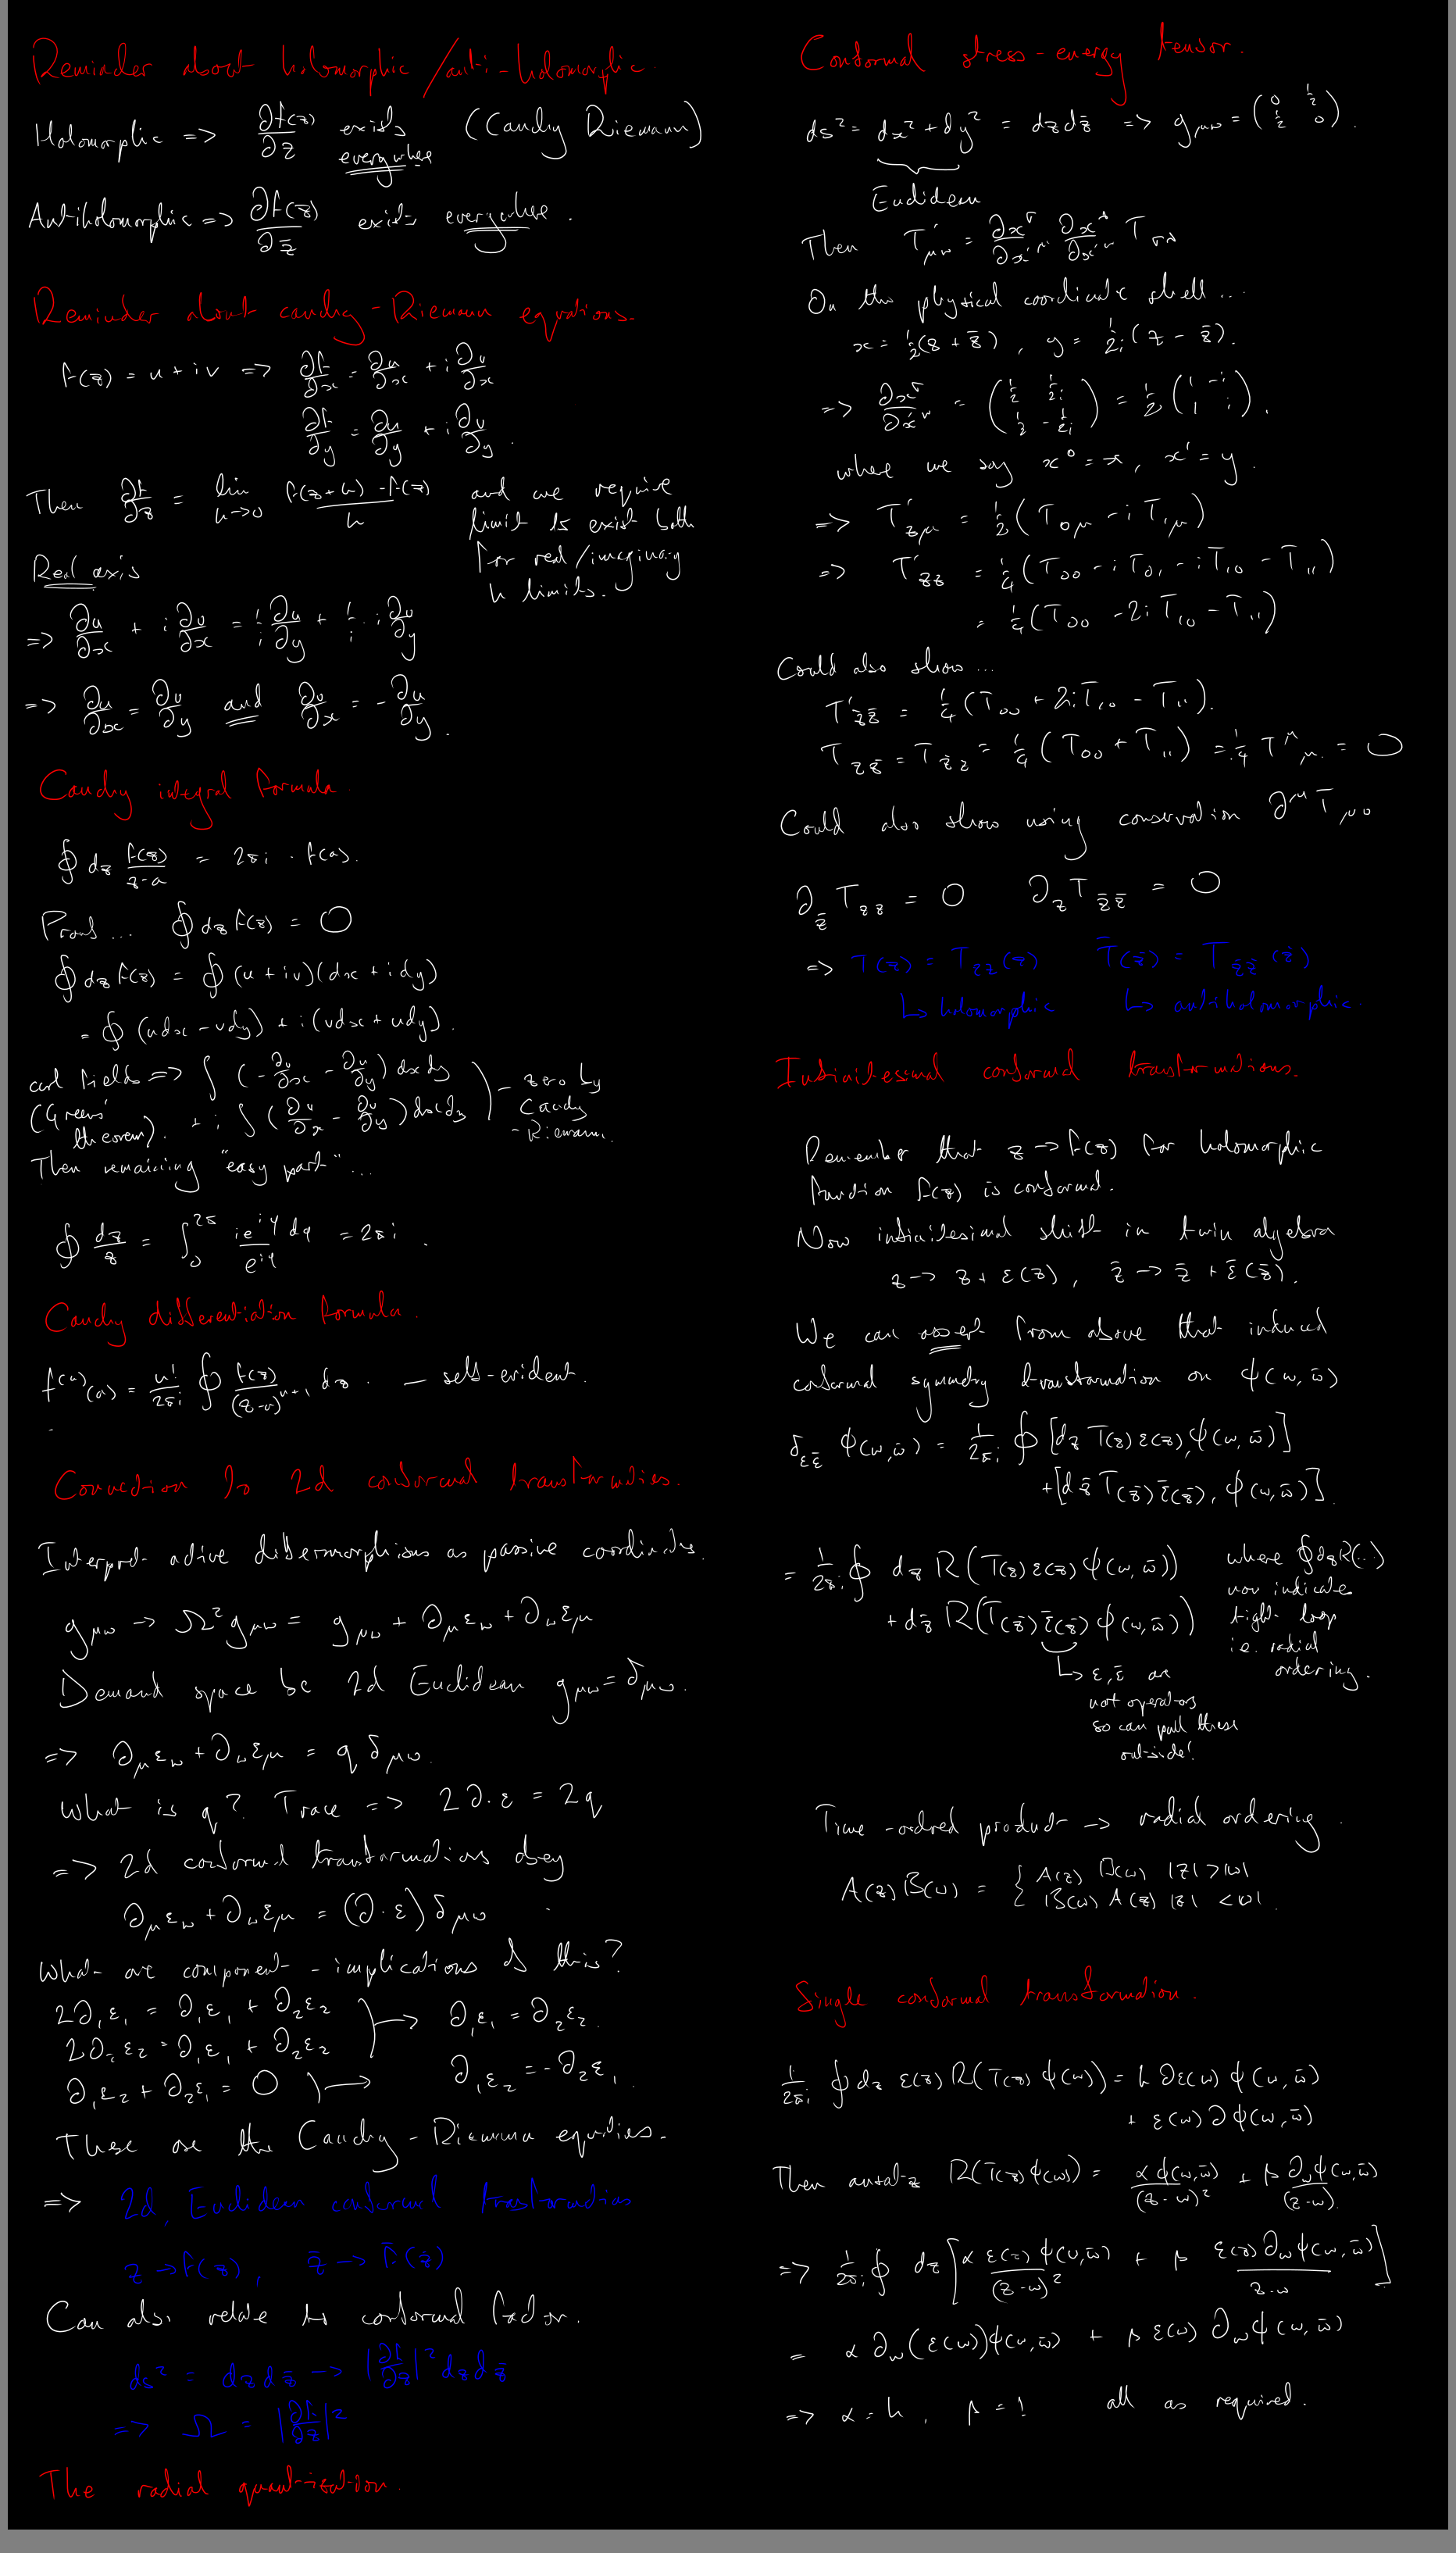 Reminder about holomorphic/anti-holomorphic
Holomorphic => ∂f(z)/∂z exists everywhere (Cauchy Riemann)
Antiholomorphic => ∂f(z)/∂z̄ exists everywhere.
Reminder about cauchy-Riemann equations.
f(z) = u + iv => ∂f/∂x = ∂u/∂x + i ∂v/∂x
∂f/∂y = ∂u/∂y + i ∂v/∂y.
Then ∂f/∂z = lim h->0 (f(z+h) - f(z))/h and we require
limit to exist both
for real/imaginary
h limits.
Real axis
=> ∂u/∂x + i ∂v/∂x = 1/i ∂u/∂y + 1/i · i ∂v/∂y
=> ∂u/∂x = ∂v/∂y and ∂v/∂x = -∂u/∂y.
Cauchy integral formula.
∮ dz f(z)/(z-a) = 2πi · f(a).
Proof... ∮ dz f(z) = 0
∮ dz f(z) = ∮ (u + iv)(dx + idy)
= ∮ (udx - vdy) + i(vdx + udy).
curl fields => ∫ (-∂v/∂x - ∂u/∂y) dxdy
(Greens' theorem). + i ∫ (∂u/∂x - ∂v/∂y) dxdy
- zero by
Cauchy
-Riemann.
Then remaining "easy part"...
∮ dz/z = ∫₀^2π ie^iφ dφ / e^iφ = 2πi.
Cauchy differentiation formula.
f^(n)(a) = n!/2πi ∮ f(z)/(z-a)^n+1 dz. - self-evident.
Connection to 2d conformal transformations.
Interpret active diffeomorphisms as passive coordinates.
g_μν -> Ω² g_μν = g_μν + ∂_μ ε_ν + ∂_ν ε_μ
Demand space be 2d Euclidean g_μν = δ_μν.
=> ∂_μ ε_ν + ∂_ν ε_μ = q δ_μν.
What is q? Trace => 2∂·ε = 2q
=> 2d conformal transformations obey
∂_μ ε_ν + ∂_ν ε_μ = (∂·ε) δ_μν
What are component-implications of this?
2∂₁ε₁ = ∂₁ε₁ + ∂₂ε₂
2∂₂ε₂ = ∂₁ε₁ + ∂₂ε₂ -> ∂₁ε₁ = ∂₂ε₂.
∂₁ε₂ + ∂₂ε₁ = 0 -> ∂₁ε₂ = -∂₂ε₁.
These are the Cauchy-Riemann equations.
=> 2d, Euclidean conformal transformations
z -> f(z), z̄ -> f̄(z̄)
Can also relate to conformal factor.
ds² = dzdz̄ -> |∂f/∂z|² dzdz̄
=> Ω = |∂f/∂z|²
The radial quantisation.
Conformal stress-energy tensor.
ds² = dx² + dy² = dzdz̄ => g_μν = (0 1/2 1/2 0).
Euclidean
Then T'_μν = ∂x^σ/∂x'^μ ∂x^λ/∂x'^ν T_σλ
On the physical coordinate shell...
x = 1/2(z + z̄), y = 1/2i(z - z̄).
=> ∂x^σ/∂x'^ν = (1/2 1/2i 1/2 -1/2i) = 1/2 (1 -i 1 i).
where we say x⁰ = x, x¹ = y.
=> T'_zμ = 1/2(T_0μ - iT_1μ)
=> T'_zz = 1/4(T_00 - iT_01 - iT_10 - T_11)
= 1/4(T_00 - 2iT_10 - T_11)
Could also show...
T'_z̄z̄ = 1/4(T_00 + 2iT_10 - T_11).
T_zz̄ = T_z̄z = 1/4(T_00 + T_11) = 1/4 T^μ_μ = 0
Could also show using conservation ∂^μ T_μν
∂_z̄ T_zz = 0 ∂_z T_z̄z̄ = 0
=> T(z) = T_zz(z) T̄(z̄) = T_z̄z̄(z̄)
↳ holomorphic ↳ antiholomorphic.
Infinitesimal conformal transformations.
Remember that z -> f(z) for holomorphic
function f(z) is conformal.
Now infinitesimal shift in twin algebra
z -> z + ε(z), z̄ -> z̄ + ε̄(z̄).
We can assert from above that induced
conformal symmetry transformation on φ(w, w̄)
δ_εε̄ φ(w,w̄) = 1/2πi ∮ [dz T(z)ε(z), φ(w,w̄)]
+ [dz̄ T(z̄)ε̄(z̄), φ(w,w̄)].
= 1/2πi ∮ dz R(T(z)ε(z)φ(w,w̄))
+ dz̄ R(T(z̄)ε̄(z̄)φ(w,w̄))
where ∮dzR(...)
now indicates
tight loop
i.e. radial
ordering.
↳ ε, ε̄ are
not operators
so can pull these
outside!
Time-ordered product -> radial ordering.
A(z)B(w) = { A(z)B(w) |z|>|w|
B(w)A(z) |z|<|w|.
Single conformal transformation.
1/2πi ∮ dz ε(z) R(T(z)φ(w)) = h ∂ε(w) φ(w,w̄)
+ ε(w)∂φ(w,w̄)
Then ansatz R(T(z)φ(w)) = αφ(w,w̄)/(z-w)² + β ∂_wφ(w,w̄)/(z-w)
=> 1/2πi ∮ dz [α ε(z)φ(w,w̄)/(z-w)² + β ε(z)∂_wφ(w,w̄)/z-w]
= α ∂_w(ε(w))φ(w,w̄) + β ε(w) ∂_wφ(w,w̄)
=> α = h, β = 1 all as required.